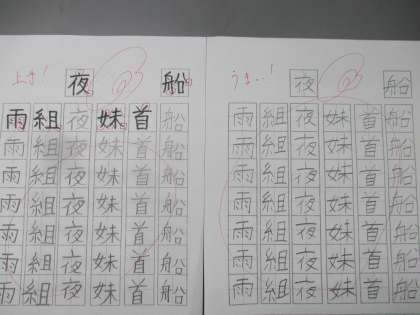 上手!
夜 船
雨 組 夜 妹 首 船
雨 組 夜 妹 首 船
雨 組 夜 妹 首 船
雨 組 夜 妹 首 船
雨 組 夜 妹 首 船
雨 組 夜 妹 首 船
雨 組 夜 妹 首 船
夜 船
雨 組 夜 妹 首 船
雨 組 夜 妹 首 船
雨 組 夜 妹 首 船
雨 組 夜 妹 首 船
雨 組 夜 妹 首 船
雨 組 夜 妹 首 船
雨 組 夜 妹 首 船